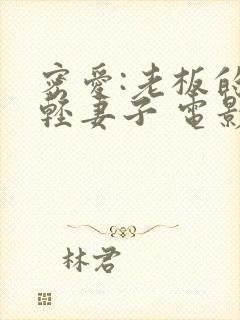 密愛:老板的
輕妻子 電影
林君